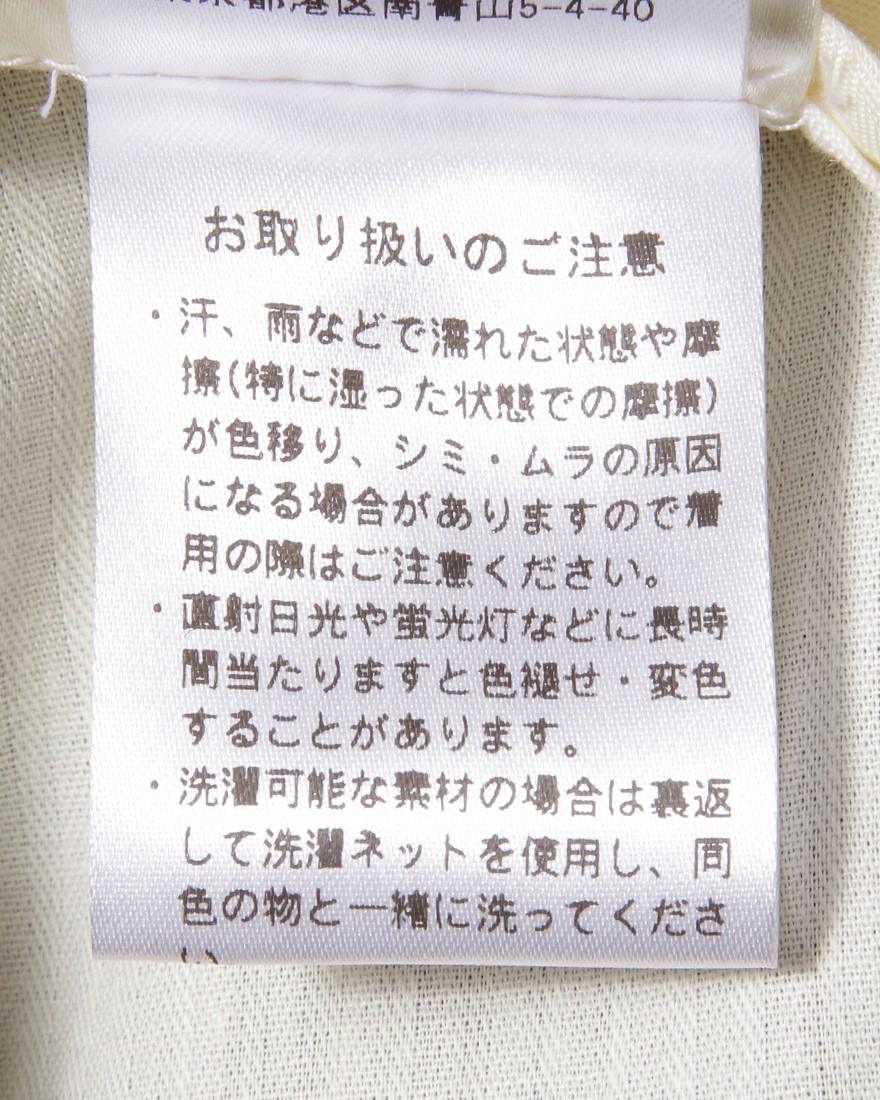 東京都港区南青山5-4-40
お取り扱いのご注意
・汗、雨などで濡れた状態や摩
擦(特に湿った状態での摩擦)
が色移り、シミ・ムラの原因
になる場合がありますので着
用の際はご注意ください。
・直射日光や蛍光灯などに長時
間当たりますと色褪せ・変色
することがあります。
・洗濯可能な素材の場合は裏返
して洗濯ネットを使用し、同
色の物と一緒に洗ってくださ
い